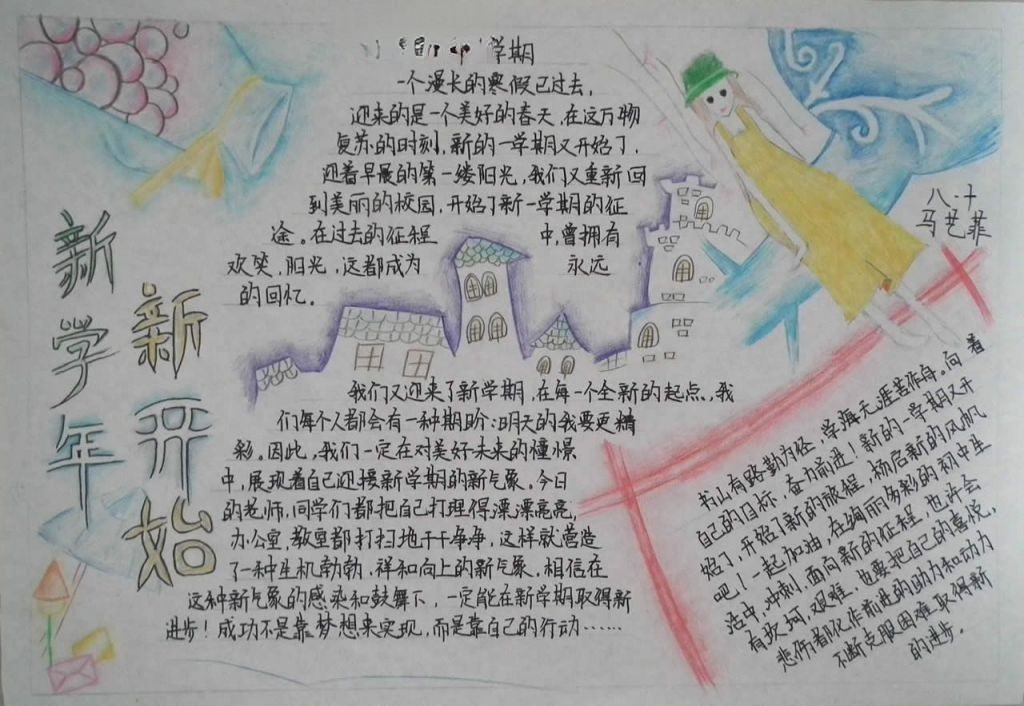 学期
一个漫长的寒假已过去,
迎来的是一个美好的春天,在这万物
复苏的时刻,新的一学期又开始了,
迎着早晨的第一缕阳光,我们又重新回
到美丽的校园,开始了新一学期的征
途。在过去的征程中,曾拥有
欢笑,阳光,这都成为永远
的回忆。
新学年
新开始
八.十
马艺菲
我们又迎来了新学期,在每一个全新的起点,我
们每个人都会有一种期盼:明天的我要更精
彩。因此,我们一定在对美好未来的憧憬
中,展现着自己迎接新学期的新气象。今日
的老师,同学们都把自己打理得漂漂亮亮,
办公室,教室都打扫地干干净净,这样就营造
了一种生机勃勃,祥和向上的新气象。相信在
这种新气象的感染和鼓舞下,一定能在新学期取得新
进步!成功不是靠梦想来实现,而是靠自己的行动……
书山有路勤为径,学海无涯苦作舟。向着
自己的目标,奋力前进!新的一学期又开
始了,开始了新的旅程,扬启新的风帆
吧!一起加油,在绚丽多彩的初中生
活中,冲刺,面向新的征程,也许会
有坎坷,艰难,也要把自己的喜悦,
悲伤都化作前进的助力和动力
不断克服困难取得新
的进步。